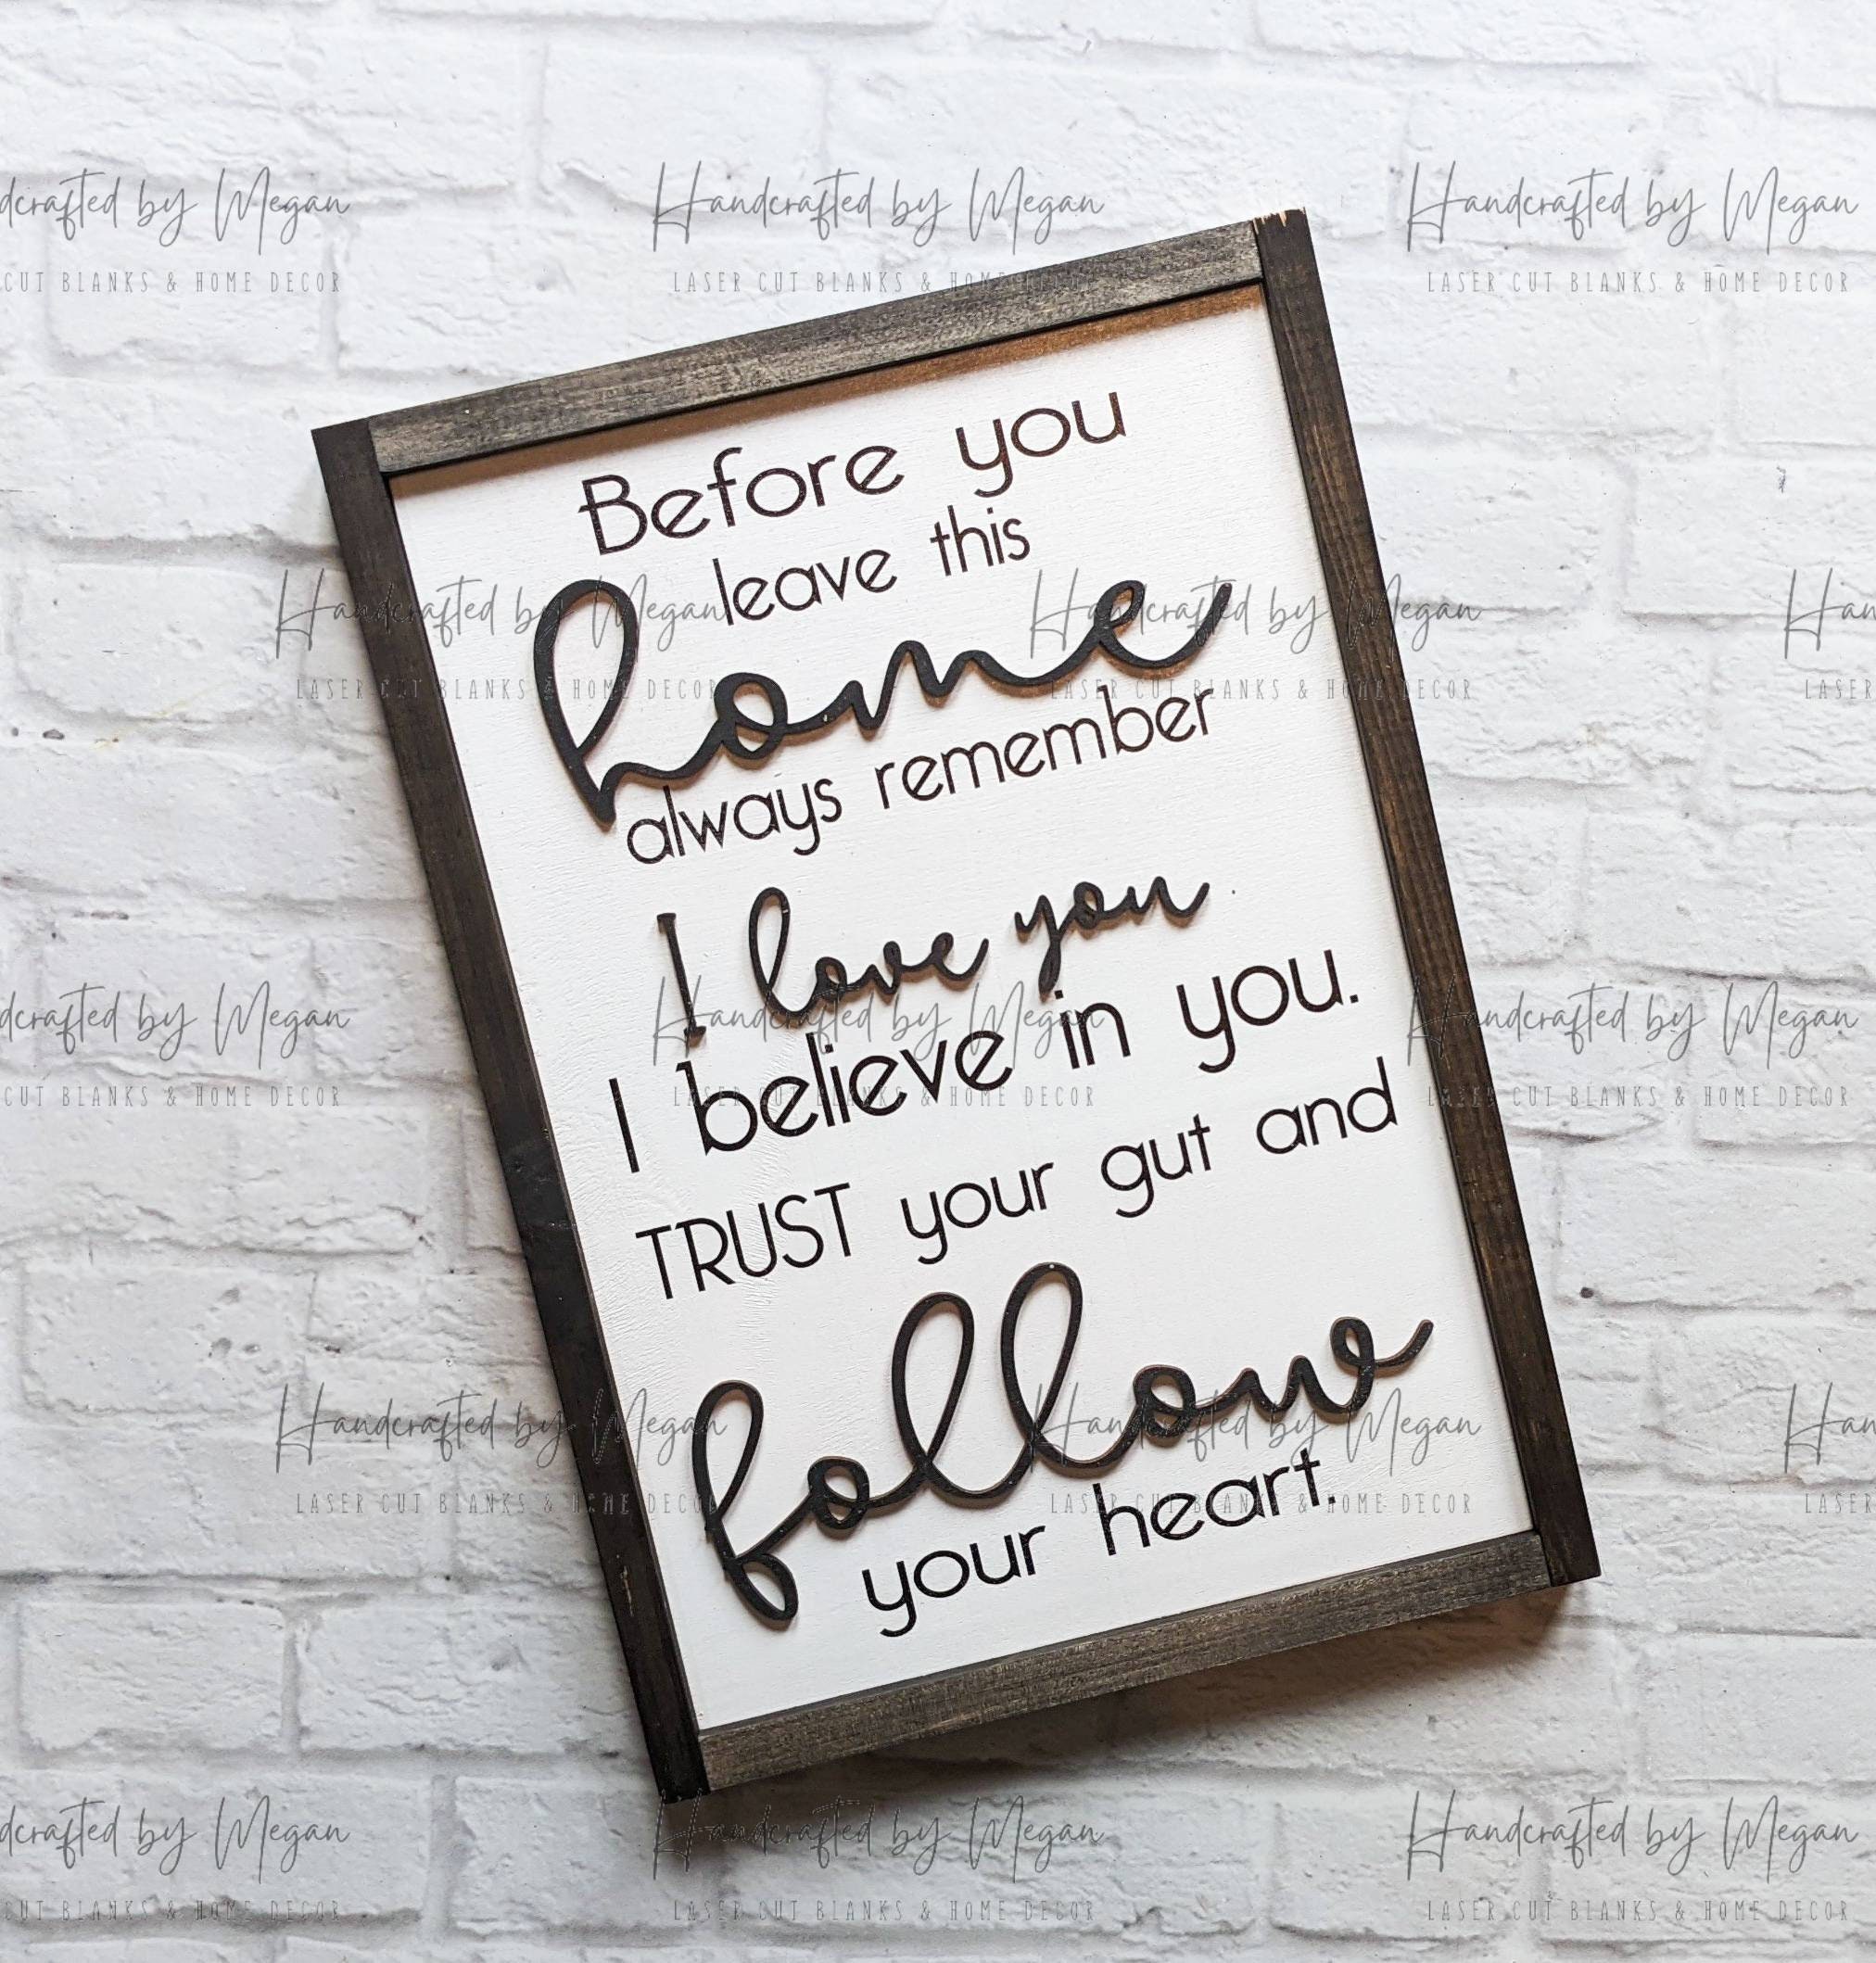 Before you
leave this
home
always remember
I love you
I believe in you.
TRUST your gut and
follow
your heart.
Handcrafted by Megan
LASER CUT BLANKS & HOME DECOR